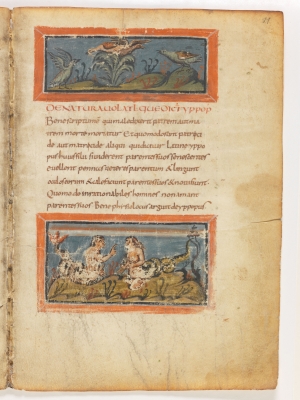 DE NATURA UOLATILI QUE DIC YPPOP
Bene scriptum qui maledixerit patri aut
morte moriatur Et quomodo sunt
de aut matricide aliqui dicitur Latine yppa
pus huius filii si uiderint parentes suos senescentes
euellent pennas ueteres parentum & lingunt
oculos eorum & calefaciunt parentes suos & nouificent
Quomodo inrationabiles homines non amant
parentes suos Bene phisiolocus arguit de yppopus